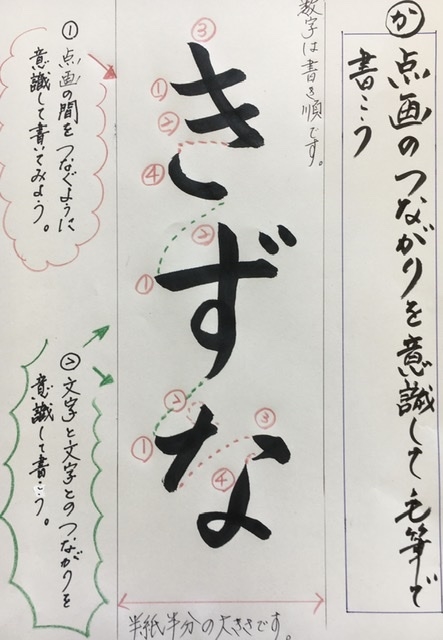 か
点画のつながりを意識して毛筆で
書こう
数字は書き順です。
きずな
③
①
②
④
②
①
②
③
①
④
半紙半分の大きさです。
① 点画の間をつなぐように
意識して書いてみよう。
② 文字と文字とのつながりを
意識して書こう。